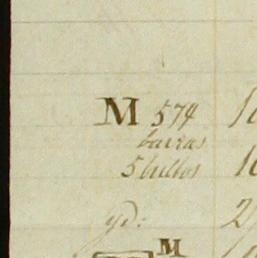 M 574
barras
5 bultos
yd:
M